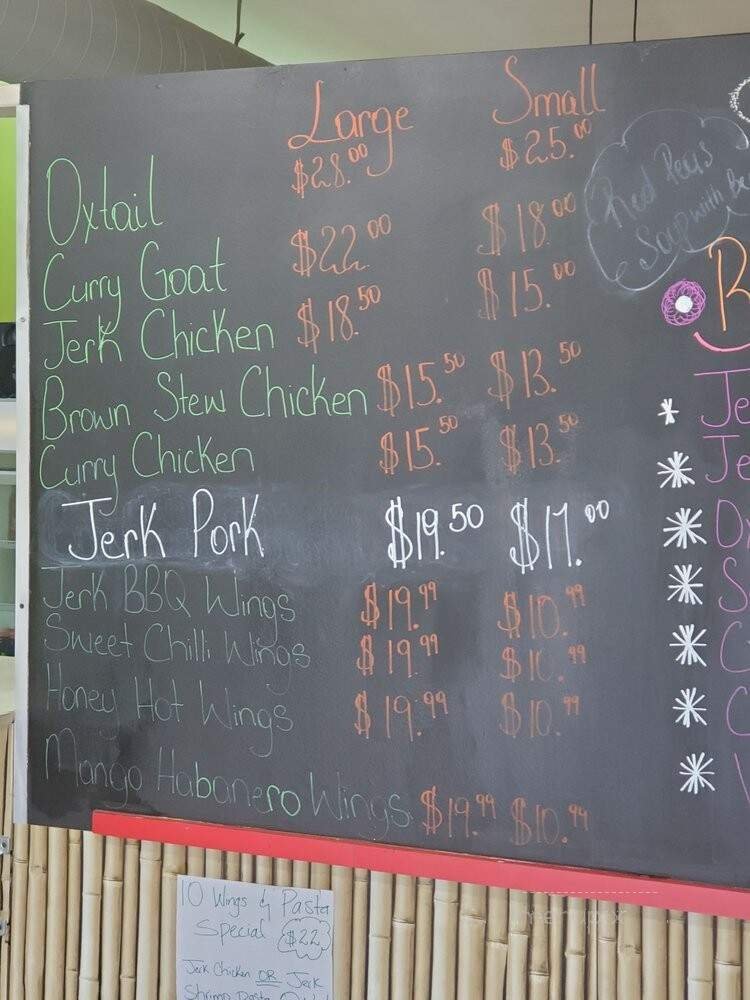 Large Small
Oxtail $28.00 $25.00
Curry Goat $22.00 $18.00
Jerk Chicken $18.50 $15.00
Brown Stew Chicken $15.50 $13.50
Curry Chicken $15.50 $13.50
Jerk Pork $19.50 $17.00
Jerk BBQ Wings $19.99 $10.99
Sweet Chilli Wings $19.99 $10.99
Honey Hot Wings $19.99 $10.99
Mango Habanero Wings $19.99 $10.99
Red Peas
Soup with
10 Wings & Pasta
Special $22
Jerk Chicken OR Jerk
Shrimp Pasta